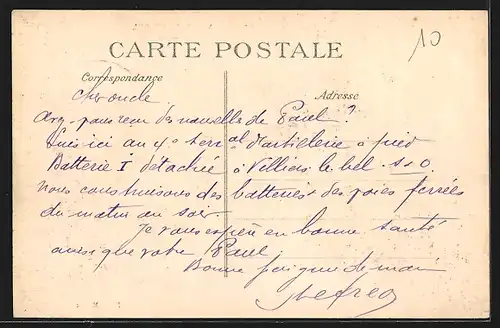 10
CARTE POSTALE
Correspondance
Adresse
Cher oncle
Avez-vous reçu des nouvelles de Paul ?
Suis ici au 4e terral d'artillerie à pied
Batterie I détachée à Villiers le bel S-O
Nous construisons des batteries et des voies ferrées
du matin au soir
Je vous espère en bonne santé
ainsi que votre Paul
Bonne poignée de main